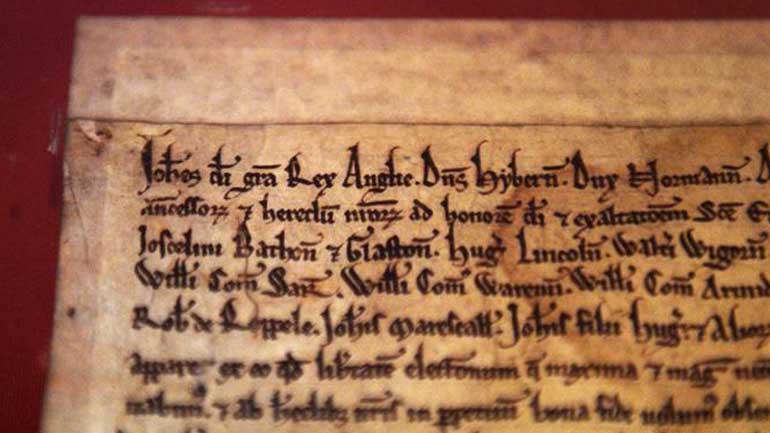 Joh̄es dī gr̄a Rex Anglie. Dn̄s Hybern̄. Dux Normann̄.
ancessorꝝ ⁊ heredū meorꝝ ad honorē dī ⁊ exaltatōem Scē
Joscelini Bathon̄ ⁊ Glaston̄. Hug̃ Lincoln̄. Walt̃i Wigorn̄
Willī Com̄ Sarr̄. Willī Com̄ Warenn̄. Willī Com̄ Arund
Rob̃ de Roppele. Joh̄is Marescall̃. Joh̄is filii Hug̃. ⁊
appare et eo qd̄ lib̃tatē electionum q̃ maxima ⁊ mag̃
⁊ ab h̃edib; nr̄is in ꝑpetuū bona fide volum̃